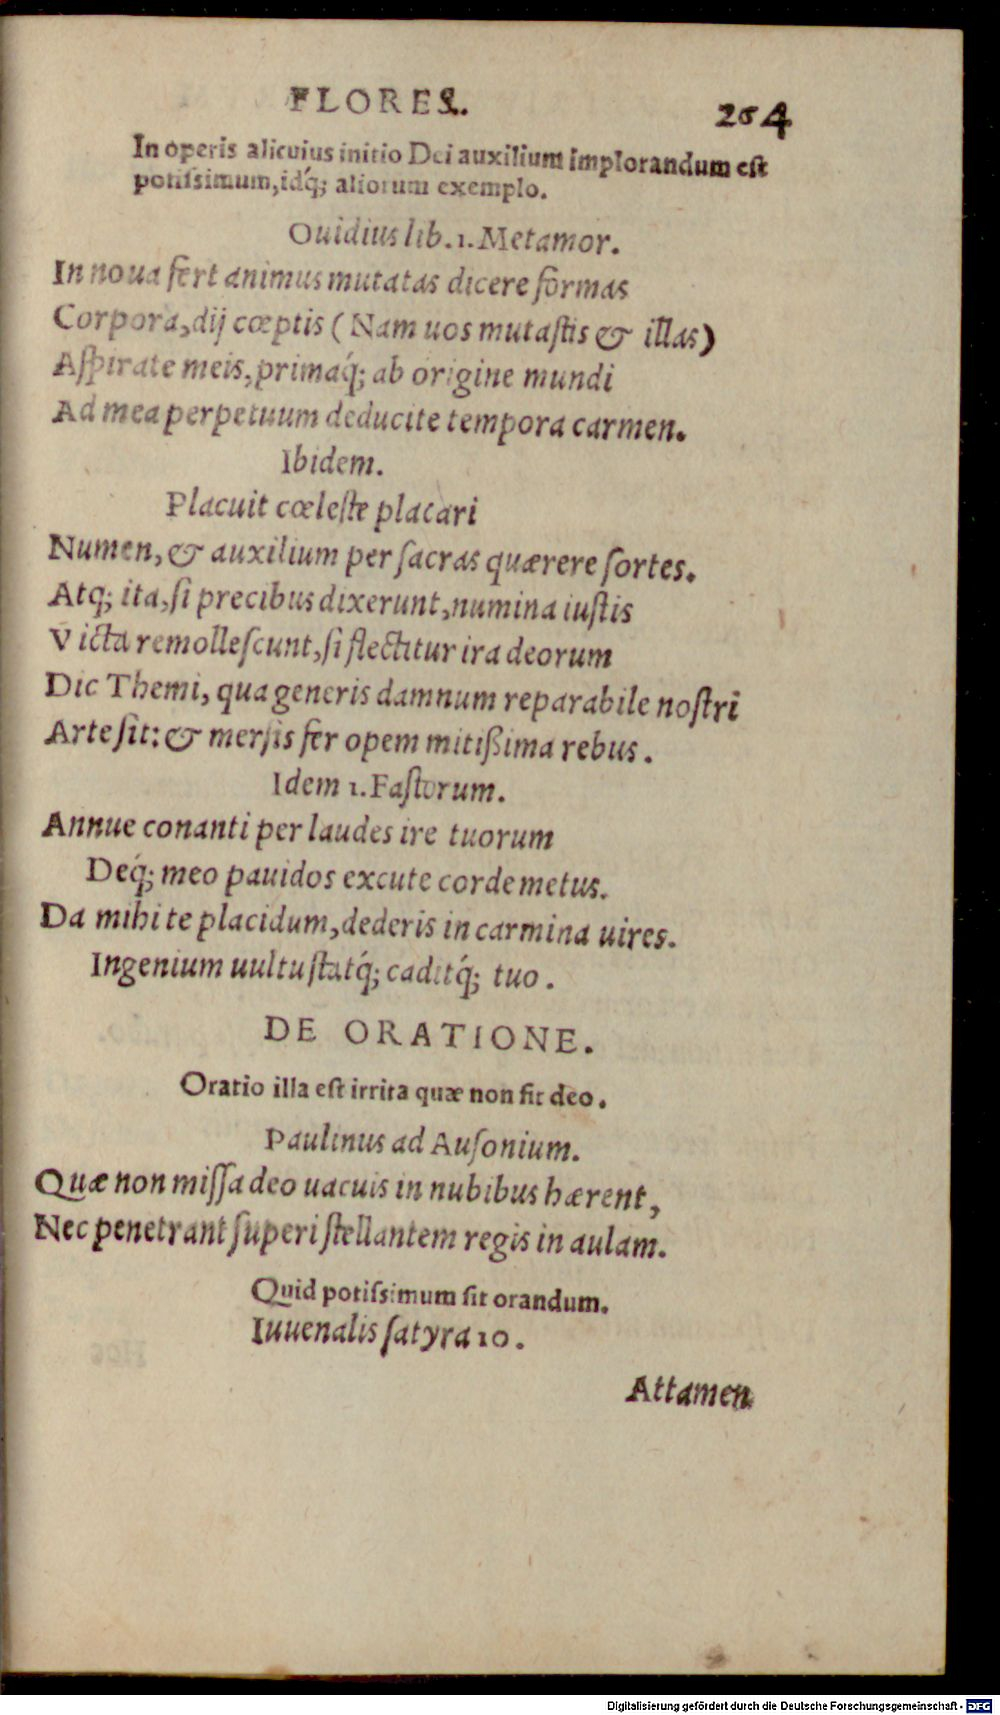 FLORES.
204
In operis alicuius initio Dei auxilium implorandum est
potiſsimum, idq́; aliorum exemplo.
Ouidius lib. 1. Metamor.
In noua fert animus mutatas dicere formas
Corpora, dij cœptis (Nam uos mutaſtis & illas)
Aſpirate meis, primaq́; ab origine mundi
Ad mea perpetuum deducite tempora carmen.
Ibidem.
Placuit cœleſte placari
Numen, & auxilium per ſacras quærere ſortes.
Atq; ita, ſi precibus dixerunt, numina iuſtis
Victa remolleſcunt, ſi flectitur ira deorum
Dic Themi, qua generis damnum reparabile noſtri
Arte ſit: & merſis fer opem mitißima rebus.
Idem 1. Faſtorum.
Annue conanti per laudes ire tuorum
Deq́; meo pauidos excute corde metus.
Da mihi te placidum, dederis in carmina uires.
Ingenium uultu ſtatq́; caditq́; tuo.
DE ORATIONE.
Oratio illa eſt irrita quæ non fit deo.
Paulinus ad Auſonium.
Quæ non miſſa deo uacuis in nubibus hærent,
Nec penetrant ſuperi ſtellantem regis in aulam.
Quid potiſsimum ſit orandum.
Iuuenalis ſatyra 10.
Attamen
Digitalisierung gefördert durch die Deutsche Forschungsgemeinschaft - DFG